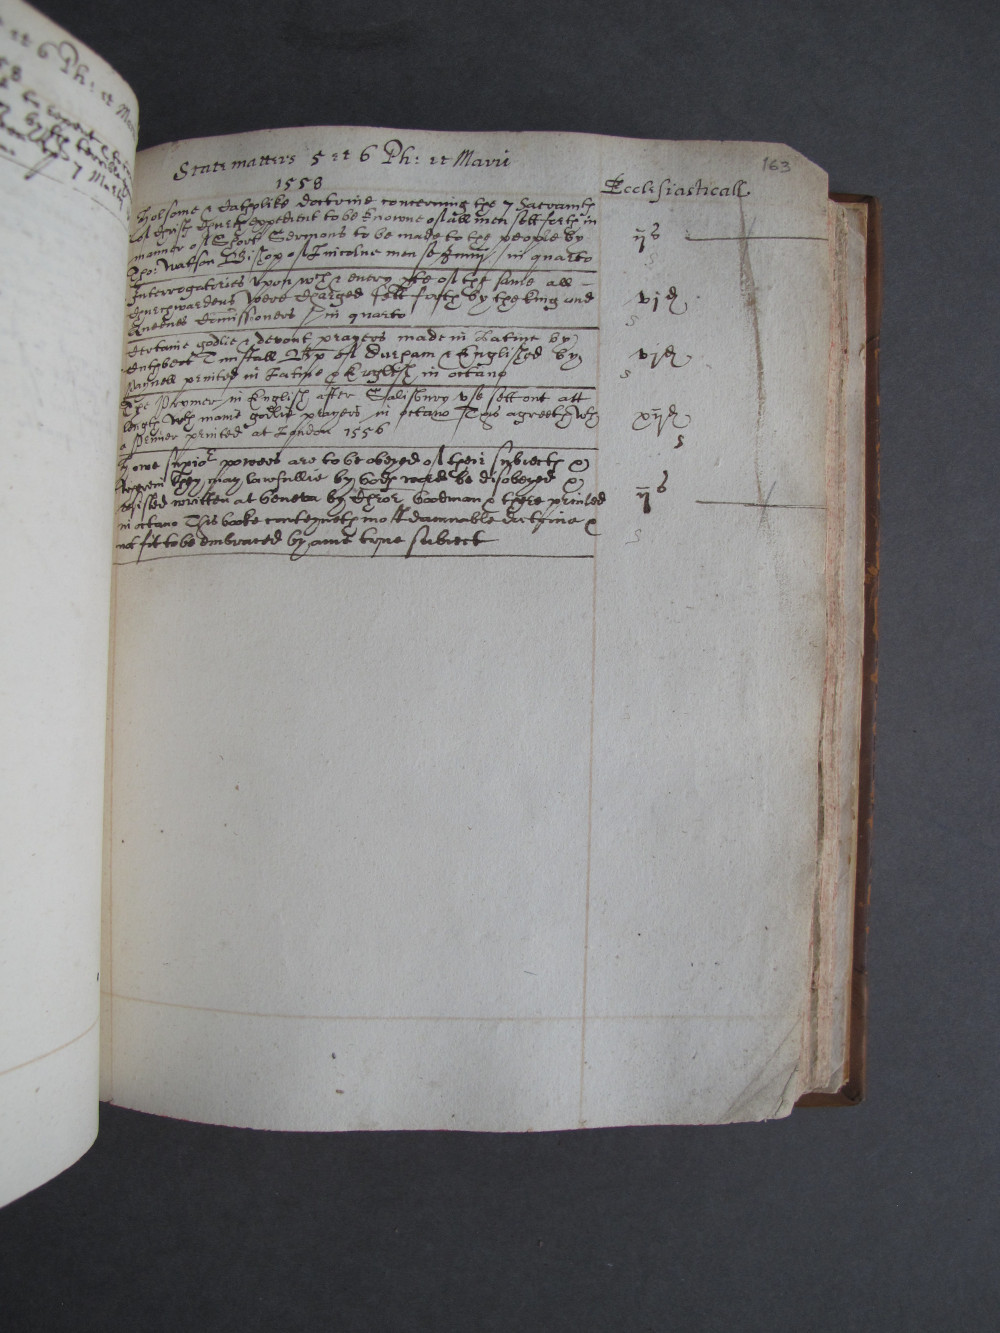 State matters 5 et 6 Ph: et Marii
163
1558
Ecclesiasticall
Holsome & Catholike doctrine concerning the 7 Sacramts
of Christ Church expedient to be knowne of all men sett forth in
manner of Short Sermons to be made to the people by
Tho: Watson Bishop of Lincolne in quarto
ijs
Interrogatories upon wch & every the of the same all
Churchwardens were charged sett forth by the king and
Queenes Comissioners in quarto
vjd
Certaine godlie & devout prayers made in Latine by
Cuthbert Tunstall Bp of Durham & Englished by
Paynell printed in Latine & English in octavo
vjd
The Prymer in English after Salisbury use sett out att
length wth manie godlie prayers in octavo This agreeth wth
a Primer printed at London 1556
xijd
Howe supior powers are to be obeyed of their subiects &
wherein they may lawfullie by Gods word be disobeyed &
resisted written at Geneva by Christor Goodman & there printed
in octavo This booke conteyneth most damnable doctrine &
not fit to be embraced by anie true subiect
ijs
et 6 Ph: et Mar
58
7 Mar